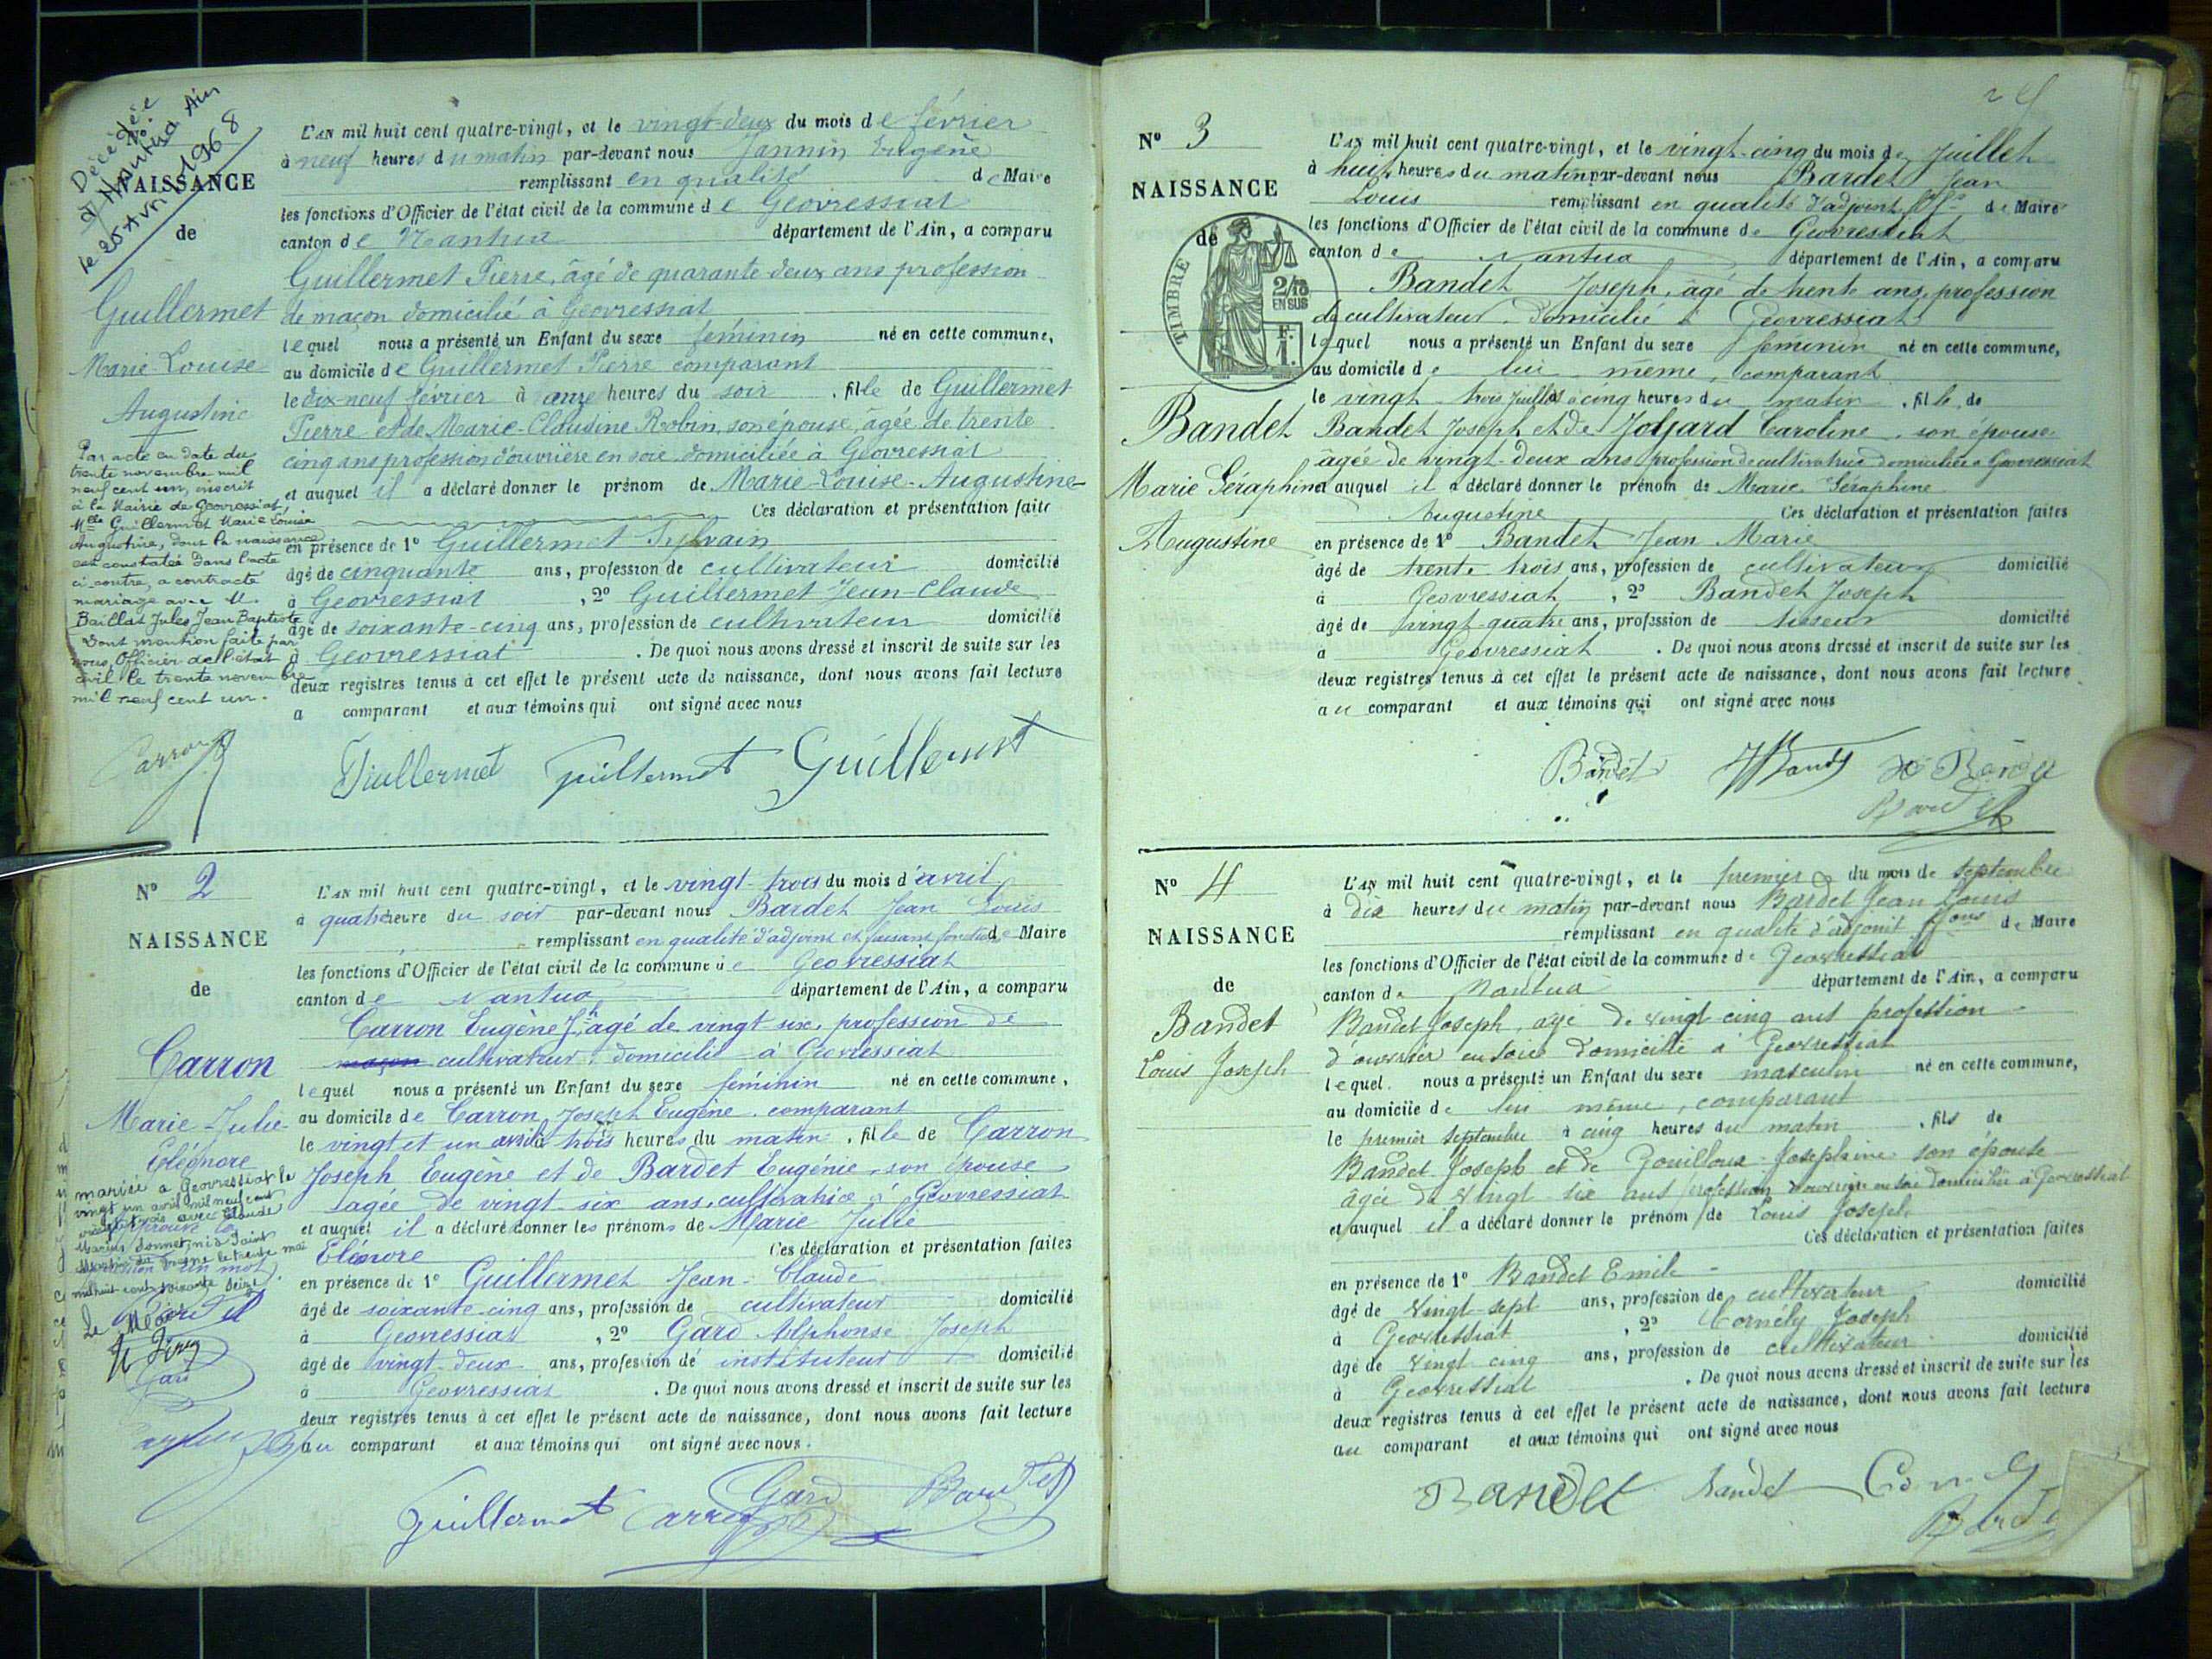 Décédée
à Nantua Ain
le 25 Avril 1968
NAISSANCE
de
Guillermet
Marie-Louise
Augustine
Par acte en date du
trente novembre mil
neuf cent un, inscrit
à la Mairie de Geovressiat,
Mlle Guillermet Marie Louise
Augustine, dont la naissance
est constatée dans l'acte
ci-contre, a contracté
mariage avec M.
Baillat Jules Jean Baptiste
Dont mention faite par
nous, Officier de l'état
civil le trente novembre
mil neuf cent un.
L'AN mil huit cent quatre-vingt, et le vingt-deux du mois de février
à neuf heures du matin par-devant nous Jannin Eugène
remplissant en qualité de Maire
les fonctions d'Officier de l'état civil de la commune de Geovressiat
canton de Nantua département de l'Ain, a comparu
Guillermet Pierre, âgé de quarante deux ans profession
de maçon domicilié à Géovressiat
lequel nous a présenté un Enfant du sexe féminin né en cette commune,
au domicile de Guillermet Pierre comparant
le dix-neuf février à onze heures du soir , fille de Guillermet
Pierre et de Marie-Claudine Robin, son épouse, âgée de trente
cinq ans profession d'ouvrière en soie domiciliée à Géovressiat
et auquel il a déclaré donner le prénom de Marie-Louise-Augustine
Ces déclaration et présentation faites
en présence de 1° Guillermet Sylvain
âgé de cinquante ans, profession de cultivateur domicilié
à Geovressiat , 2° Guillermet Jean-Claude
âgé de soixante-cinq ans, profession de cultivateur domicilié
à Geovressiat . De quoi nous avons dressé et inscrit de suite sur les
deux registres tenus à cet effet le présent acte de naissance, dont nous avons fait lecture
a comparant et aux témoins qui ont signé avec nous
Carron
Guillermet Guillermet Guillermet
N° 2
NAISSANCE
de
Carron
Marie-Julie
Eléonore
mariée à Geovressiat le
vingt un avril mil neuf cent
vingt trois avec Claude
Marius
le trente mai
mil huit cent soixante seize
Le Maire
L'AN mil huit cent quatre-vingt, et le vingt-trois du mois d'avril
à quatre heure du soir par-devant nous Bardet Jean Louis
remplissant en qualité d'adjoint et faisant fonction de Maire
les fonctions d'Officier de l'état civil de la commune de Geovressiat
canton de Nantua département de l'Ain, a comparu
Carron Eugène Jh âgé de vingt six, profession de
maçon cultivateur, domicilié à Geovressiat
lequel nous a présenté un Enfant du sexe féminin né en cette commune,
au domicile de Carron Joseph Eugène, comparant
le vingt et un avril à trois heures du matin , fille de Carron
Joseph Eugène et de Bardet Eugénie, son épouse
âgée de vingt-six ans, cultivatrice à Geovressiat
et auquel il a déclaré donner les prénoms de Marie Julie
Eléonore Ces déclaration et présentation faites
en présence de 1° Guillermet Jean-Claude
âgé de soixante-cinq ans, profession de cultivateur domicilié
à Geovressiat , 2° Gard Alphonse Joseph
âgé de vingt-deux ans, profession de instituteur domicilié
à Geovressiat . De quoi nous avons dressé et inscrit de suite sur les
deux registres tenus à cet effet le présent acte de naissance, dont nous avons fait lecture
au comparant et aux témoins qui ont signé avec nous.
Guillermet Carron Gard Bardet
N° 3
NAISSANCE
de
TIMBRE
2/10
EN SUS
F.
1.
Bandet
Marie Séraphine
Augustine
L'AN mil huit cent quatre-vingt, et le vingt-cinq du mois de Juillet
à huit heures du matin par-devant nous Bardet Jean
Louis remplissant en qualité d'adjoint de Maire
les fonctions d'Officier de l'état civil de la commune de Geovressiat
canton de Nantua département de l'Ain, a comparu
Bandet Joseph, âgé de trente ans, profession
de cultivateur, domicilié à Geovressiat
lequel nous a présenté un Enfant du sexe féminin né en cette commune,
au domicile de lui même, comparant
le vingt-trois Juillet à cinq heures du matin , fille de
Bandet Joseph et de Jolyard Caroline, son épouse
âgée de vingt-deux ans profession de cultivatrice domiciliée à Geovressiat
et auquel il a déclaré donner le prénom de Marie Séraphine
Augustine Ces déclaration et présentation faites
en présence de 1° Bandet Jean Marie
âgé de trente-trois ans, profession de cultivateur domicilié
à Geovressiat , 2° Bandet Joseph
âgé de vingt-quatre ans, profession de tisseur domicilié
à Geovressiat . De quoi nous avons dressé et inscrit de suite sur les
deux registres tenus à cet effet le présent acte de naissance, dont nous avons fait lecture
au comparant et aux témoins qui ont signé avec nous
Bandet
Bardet
N° 4
NAISSANCE
de
Bandet
Louis Joseph
L'AN mil huit cent quatre-vingt, et le premier du mois de septembre
à dix heures du matin par-devant nous Bardet Jean Louis
remplissant en qualité d'adjoint de Maire
les fonctions d'Officier de l'état civil de la commune de Geovressiat
canton de Nantua département de l'Ain, a comparu
Bandet Joseph, âgé de vingt cinq ans profession
d'ouvrier en soie domicilié à Geovressiat
lequel nous a présenté un Enfant du sexe masculin né en cette commune,
au domicile de lui même, comparant
le premier septembre à cinq heures du matin , fils de
Bandet Joseph et de Gouilloux Josephine son épouse
âgée de vingt-six ans profession d'ouvrière en soie domiciliée à Geovressiat
et auquel il a déclaré donner le prénom de Louis Joseph
Ces déclaration et présentation faites
en présence de 1° Bandet Emile
âgé de vingt-sept ans, profession de cultivateur domicilié
à Geovressiat , 2° Cornély Joseph
âgé de vingt cinq ans, profession de cultivateur domicilié
à Geovressiat . De quoi nous avons dressé et inscrit de suite sur les
deux registres tenus à cet effet le présent acte de naissance, dont nous avons fait lecture
au comparant et aux témoins qui ont signé avec nous
Bandet Bandet